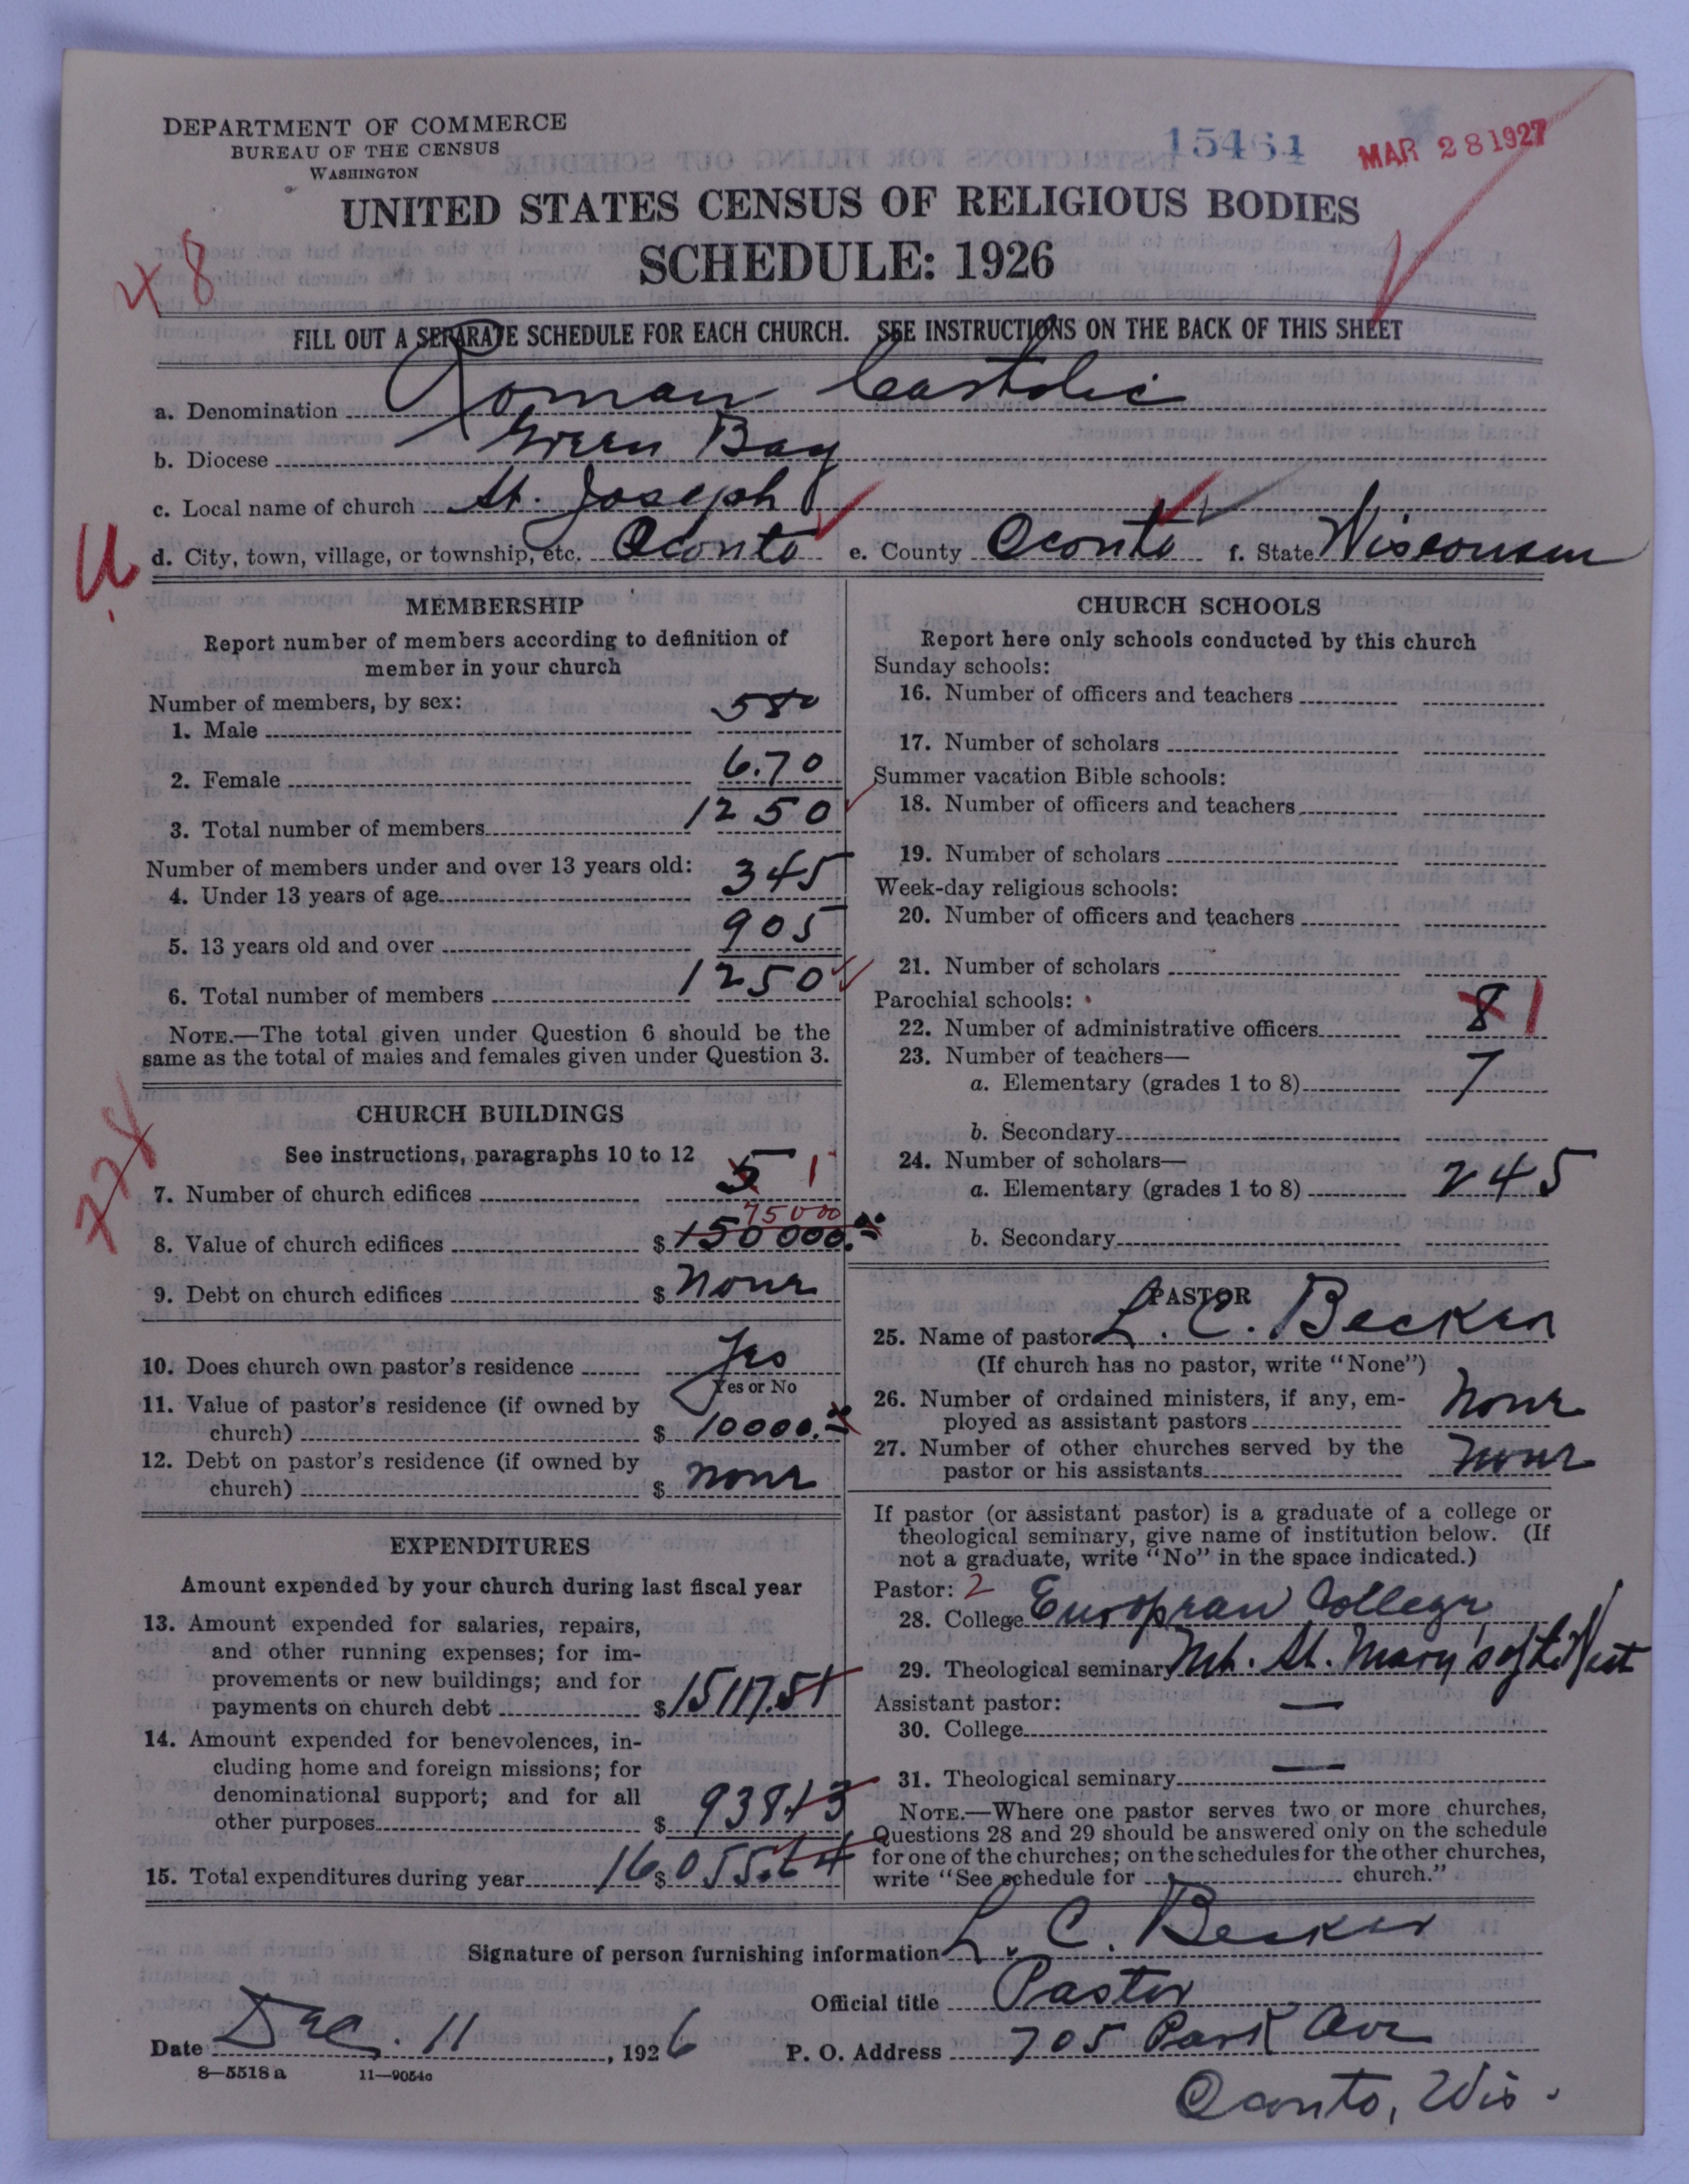 DEPARTMENT OF COMMERCE
BUREAU OF THE CENSUS
WASHINGTON
15461
MAR 28 1927
UNITED STATES CENSUS OF RELIGIOUS BODIES
SCHEDULE: 1926
48
FILL OUT A SEPARATE SCHEDULE FOR EACH CHURCH. SEE INSTRUCTIONS ON THE BACK OF THIS SHEET
a. Denomination Roman Catholic
b. Diocese Green Bay
c. Local name of church St. Joseph
d. City, town, village, or township, etc. Oconto e. County Oconto f. State Wisconsin
MEMBERSHIP
Report number of members according to definition of
member in your church
Number of members, by sex:
1. Male 580
2. Female 670
3. Total number of members 1250
Number of members under and over 13 years old:
4. Under 13 years of age 345
5. 13 years old and over 905
6. Total number of members 1250
NOTE.—The total given under Question 6 should be the
same as the total of males and females given under Question 3.
CHURCH BUILDINGS
See instructions, paragraphs 10 to 12
7. Number of church edifices 5 1
75000
8. Value of church edifices $ 150000.00
9. Debt on church edifices $ None
10. Does church own pastor's residence Yes
Yes or No
11. Value of pastor's residence (if owned by
church) $ 10000.00
12. Debt on pastor's residence (if owned by
church) $ None
EXPENDITURES
Amount expended by your church during last fiscal year
13. Amount expended for salaries, repairs,
and other running expenses; for im-
provements or new buildings; and for
payments on church debt $ 15117.51
14. Amount expended for benevolences, in-
cluding home and foreign missions; for
denominational support; and for all
other purposes $ 938.13
15. Total expenditures during year $ 16055.64
CHURCH SCHOOLS
Report here only schools conducted by this church
Sunday schools:
16. Number of officers and teachers
17. Number of scholars
Summer vacation Bible schools:
18. Number of officers and teachers
19. Number of scholars
Week-day religious schools:
20. Number of officers and teachers
21. Number of scholars
Parochial schools:
22. Number of administrative officers 8 1
23. Number of teachers—
a. Elementary (grades 1 to 8) 7
b. Secondary
24. Number of scholars—
a. Elementary (grades 1 to 8) 245
b. Secondary
PASTOR
25. Name of pastor L. C. Becker
(If church has no pastor, write "None")
26. Number of ordained ministers, if any, em-
ployed as assistant pastors None
27. Number of other churches served by the
pastor or his assistants None
If pastor (or assistant pastor) is a graduate of a college or
theological seminary, give name of institution below. (If
not a graduate, write "No" in the space indicated.)
Pastor: 2
28. College European College
29. Theological seminary Mt. St. Mary's of the West
Assistant pastor:
30. College —
31. Theological seminary —
NOTE.—Where one pastor serves two or more churches,
Questions 28 and 29 should be answered only on the schedule
for one of the churches; on the schedules for the other churches,
write "See schedule for church."
Signature of person furnishing information L. C. Becker
Official title Pastor
Date Dec. 11, 1926
P. O. Address 705 Park Ave
Oconto, Wis.
8—5518a 11—9054c